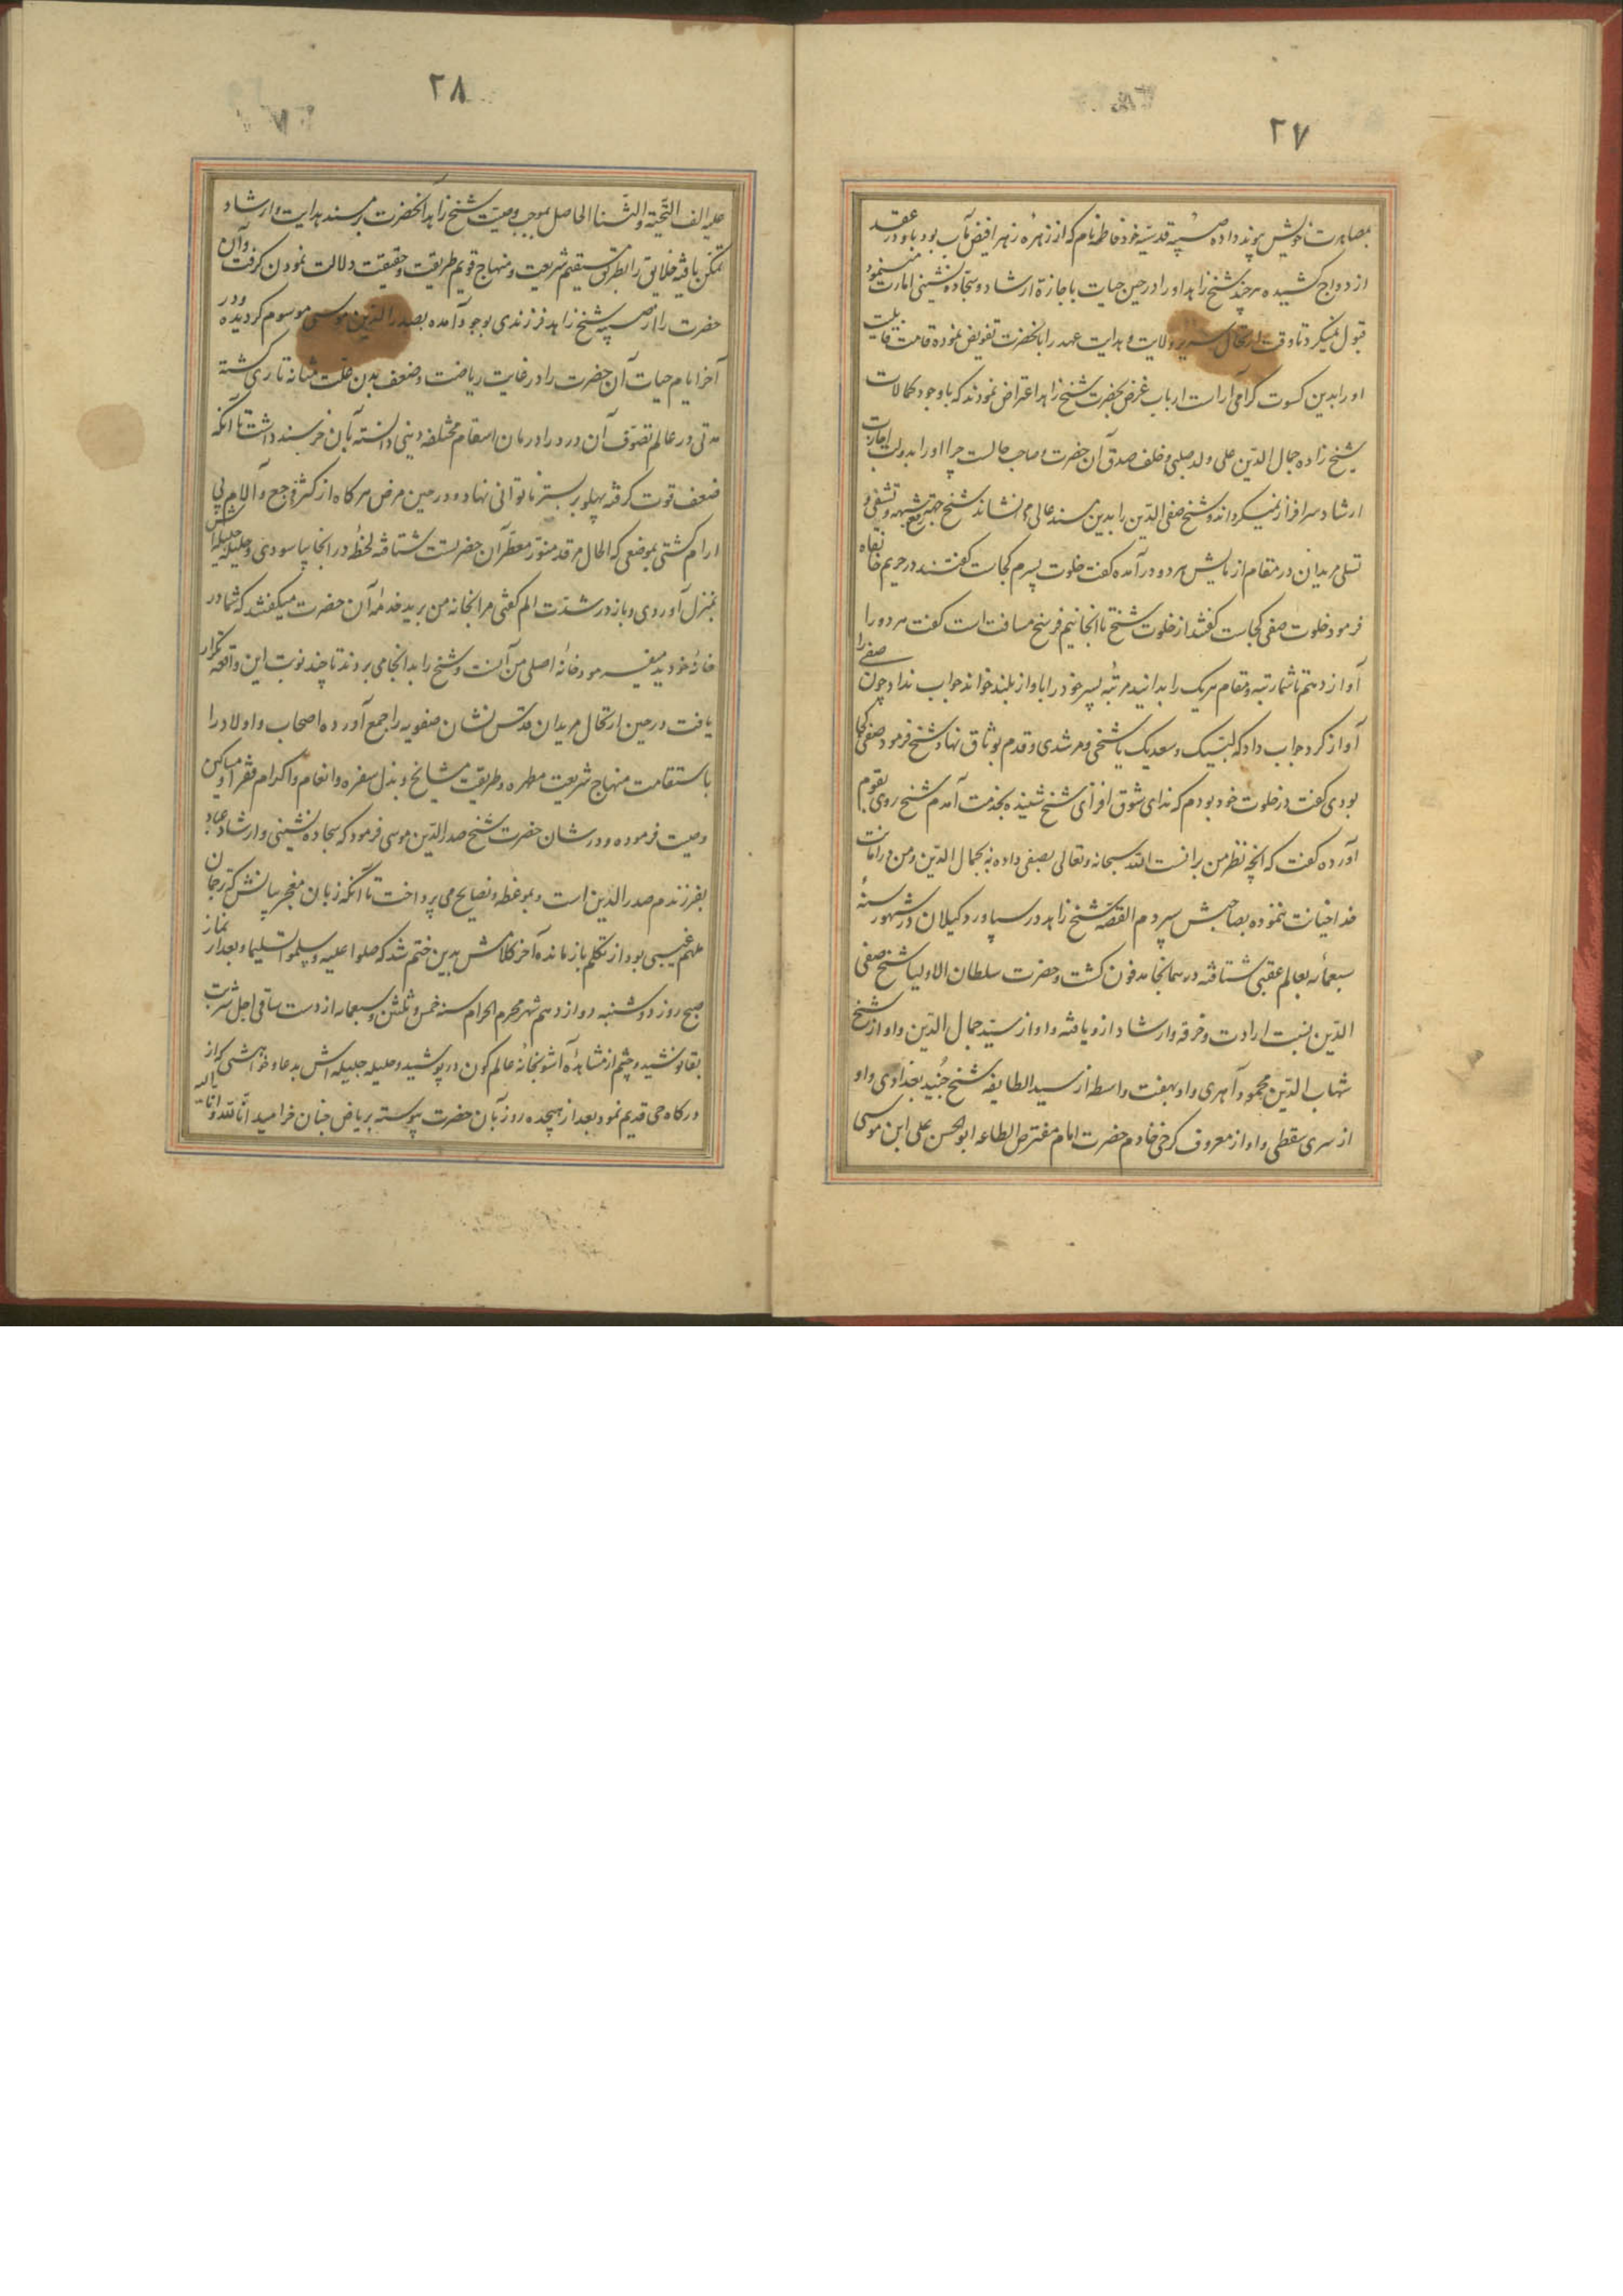 ۲۷
بمصاهرت خویش پیوند داده صبیه قدسیه خود فاطمه نام که از زهره زهرا فیض مآب بود باو در عقد
ازدواج کشیده هر چند شیخ زاهد او را در حین حیات باجازهٔ ارشاد و سجاده نشینی امارت مینمود
قبول نمیکرد تا وقت ارتحال سریر ولایت و هدایت عهد را بآنحضرت تفویض نموده قامت قابلیت
او را بدین کسوت کرامی آراست ارباب غرض بحضرت شیخ زاهد اعتراض نمودند که با وجود کمالات
شیخ زاده جمال الدین علی ولد صلبی و خلف صدق آن حضرت و صاحب حالست چرا او را بدولت اجازت
ارشاد سرافراز نمیکرداند و شیخ صفی الدین را بدین مسند عالی می نشاند شیخ جهة رفع شبهه و تشفی و
تسلی مریدان در مقام ازمایش هر دو در آمده کفت خلوت پسرم کجاست کفتند در حریم خانقاه
فرمود خلوت صفی کجاست کفتند از خلوت شیخ تا انجا نیم فرسخ مسافت است کفت هر دو را
آواز دهم تا شما رتبه و مقام هر یک را بدانید مرتبه پسر خود را باواز بلند خواند جواب نداد چون صفی را
آواز کرد جواب داد که لبیک و سعدیک یا شیخی و مرشدی و قدم بوثاق نهاد شیخ فرمود صفی کجا
بودی کفت در خلوت خود بودم که ندای شوق افزای شیخ شنیده بخدمت آمدم شیخ روی بقوم
آورده کفت که انچه نظر من برانست الله سبحانه و تعالی بصفی داده نه بجمال الدین و من در امانت
خدا خیانت ننموده بصاحبش سپردم القصه شیخ زاهد در سیاورد کیلان در شهور سنهٔ
سبعمائه بعالم عقبی شتافته در همانجا مدفون کشت و حضرت سلطان الاولیا شیخ صفی
الدین نسبت ارادت و خرقه و ارشاد ازو یافته و او از سید جمال الدین و او از شیخ
شهاب الدین محمود آهری و او بهفت واسطه از سید الطایفه شیخ جنید بغدادی و او
از سری سقطی و او از معروف کرخی خادم حضرت امام مفترض الطاعه ابو الحسن علی ابن موسی
۲۸
علیه الف التحیة و الثنا الحاصل بموجب وصیت شیخ زاهد آنحضرت بر مسند هدایت و ارشاد
تمکن یافته خلایق را بطریق مستقیم شریعت و منهاج قویم طریقت و حقیقت دلالت نمودن کرفت و آن
حضرت را از صبیه شیخ زاهد فرزندی بوجود آمده بصدر الدین موسی موسوم کردیده و در
آخر ایام حیات آن حضرت را در غایت ریاضت و ضعف بدن علت مثانه تاری کشته
مدتی در عالم تصوف آن درد را درمان اسقام مختلفه دینی دانسته بآن خرسند داشت تا آنکه
ضعف قوت کرفته پهلو بر بستر ناتوانی نهاد و در حین مرض هر کاه از کثرت وجع و آلام بی
ارام کشتی بموضعی که الحال مرقد منور معطر آن حضرتست شتافته لحظهٔ در انجا بیاسودی و حلیله جلیله اش
بمنزل آوردی و باز در شدت الم کفتی مرا بخانه من برید خدمهٔ آن حضرت میکفتند که شما در
خانهٔ خودید میفرمود خانهٔ اصلی من آنست و شیخ را بدانجا می بردند تا چند نوبت این واقعه تکرار
یافت در حین ارتحال مریدان قدس نشان صفویه را جمع آورده اصحاب و اولاد را
باستقامت منهاج شریعت مطهره و طریقت مشایخ و بذل سفره و انعام و اکرام فقرا و مساکین
وصیت فرموده و در شان حضرت شیخ صدر الدین موسی فرمود که سجاده نشینی و ارشاد عباد
بفرزندم صدر الدین است و بموعظه و نصایح می پرداخت تا آنکه زبان معجز بیانش که ترجمان
ملهم غیبی بود از تکلم باز مانده آخر کلامش بدین ختم شد که صلوا علیه و سلموا تسلیما و بعد از نماز
صبح روز دوشنبه دوازدهم شهر محرم الحرام سنه خمس و ثلثین و سبعمایه از دست ساقی اجل شربت
بقا نوشید و چشم از مشاهدهٔ آشوبخانهٔ عالم کون در پوشید و حلیله جلیله اش بدعا و خواهشی که از
درکاه حی قدیم نمود بعد از هیجده روز بآن حضرت پیوسته بریاض جنان خرامید انا لله و انا الیه